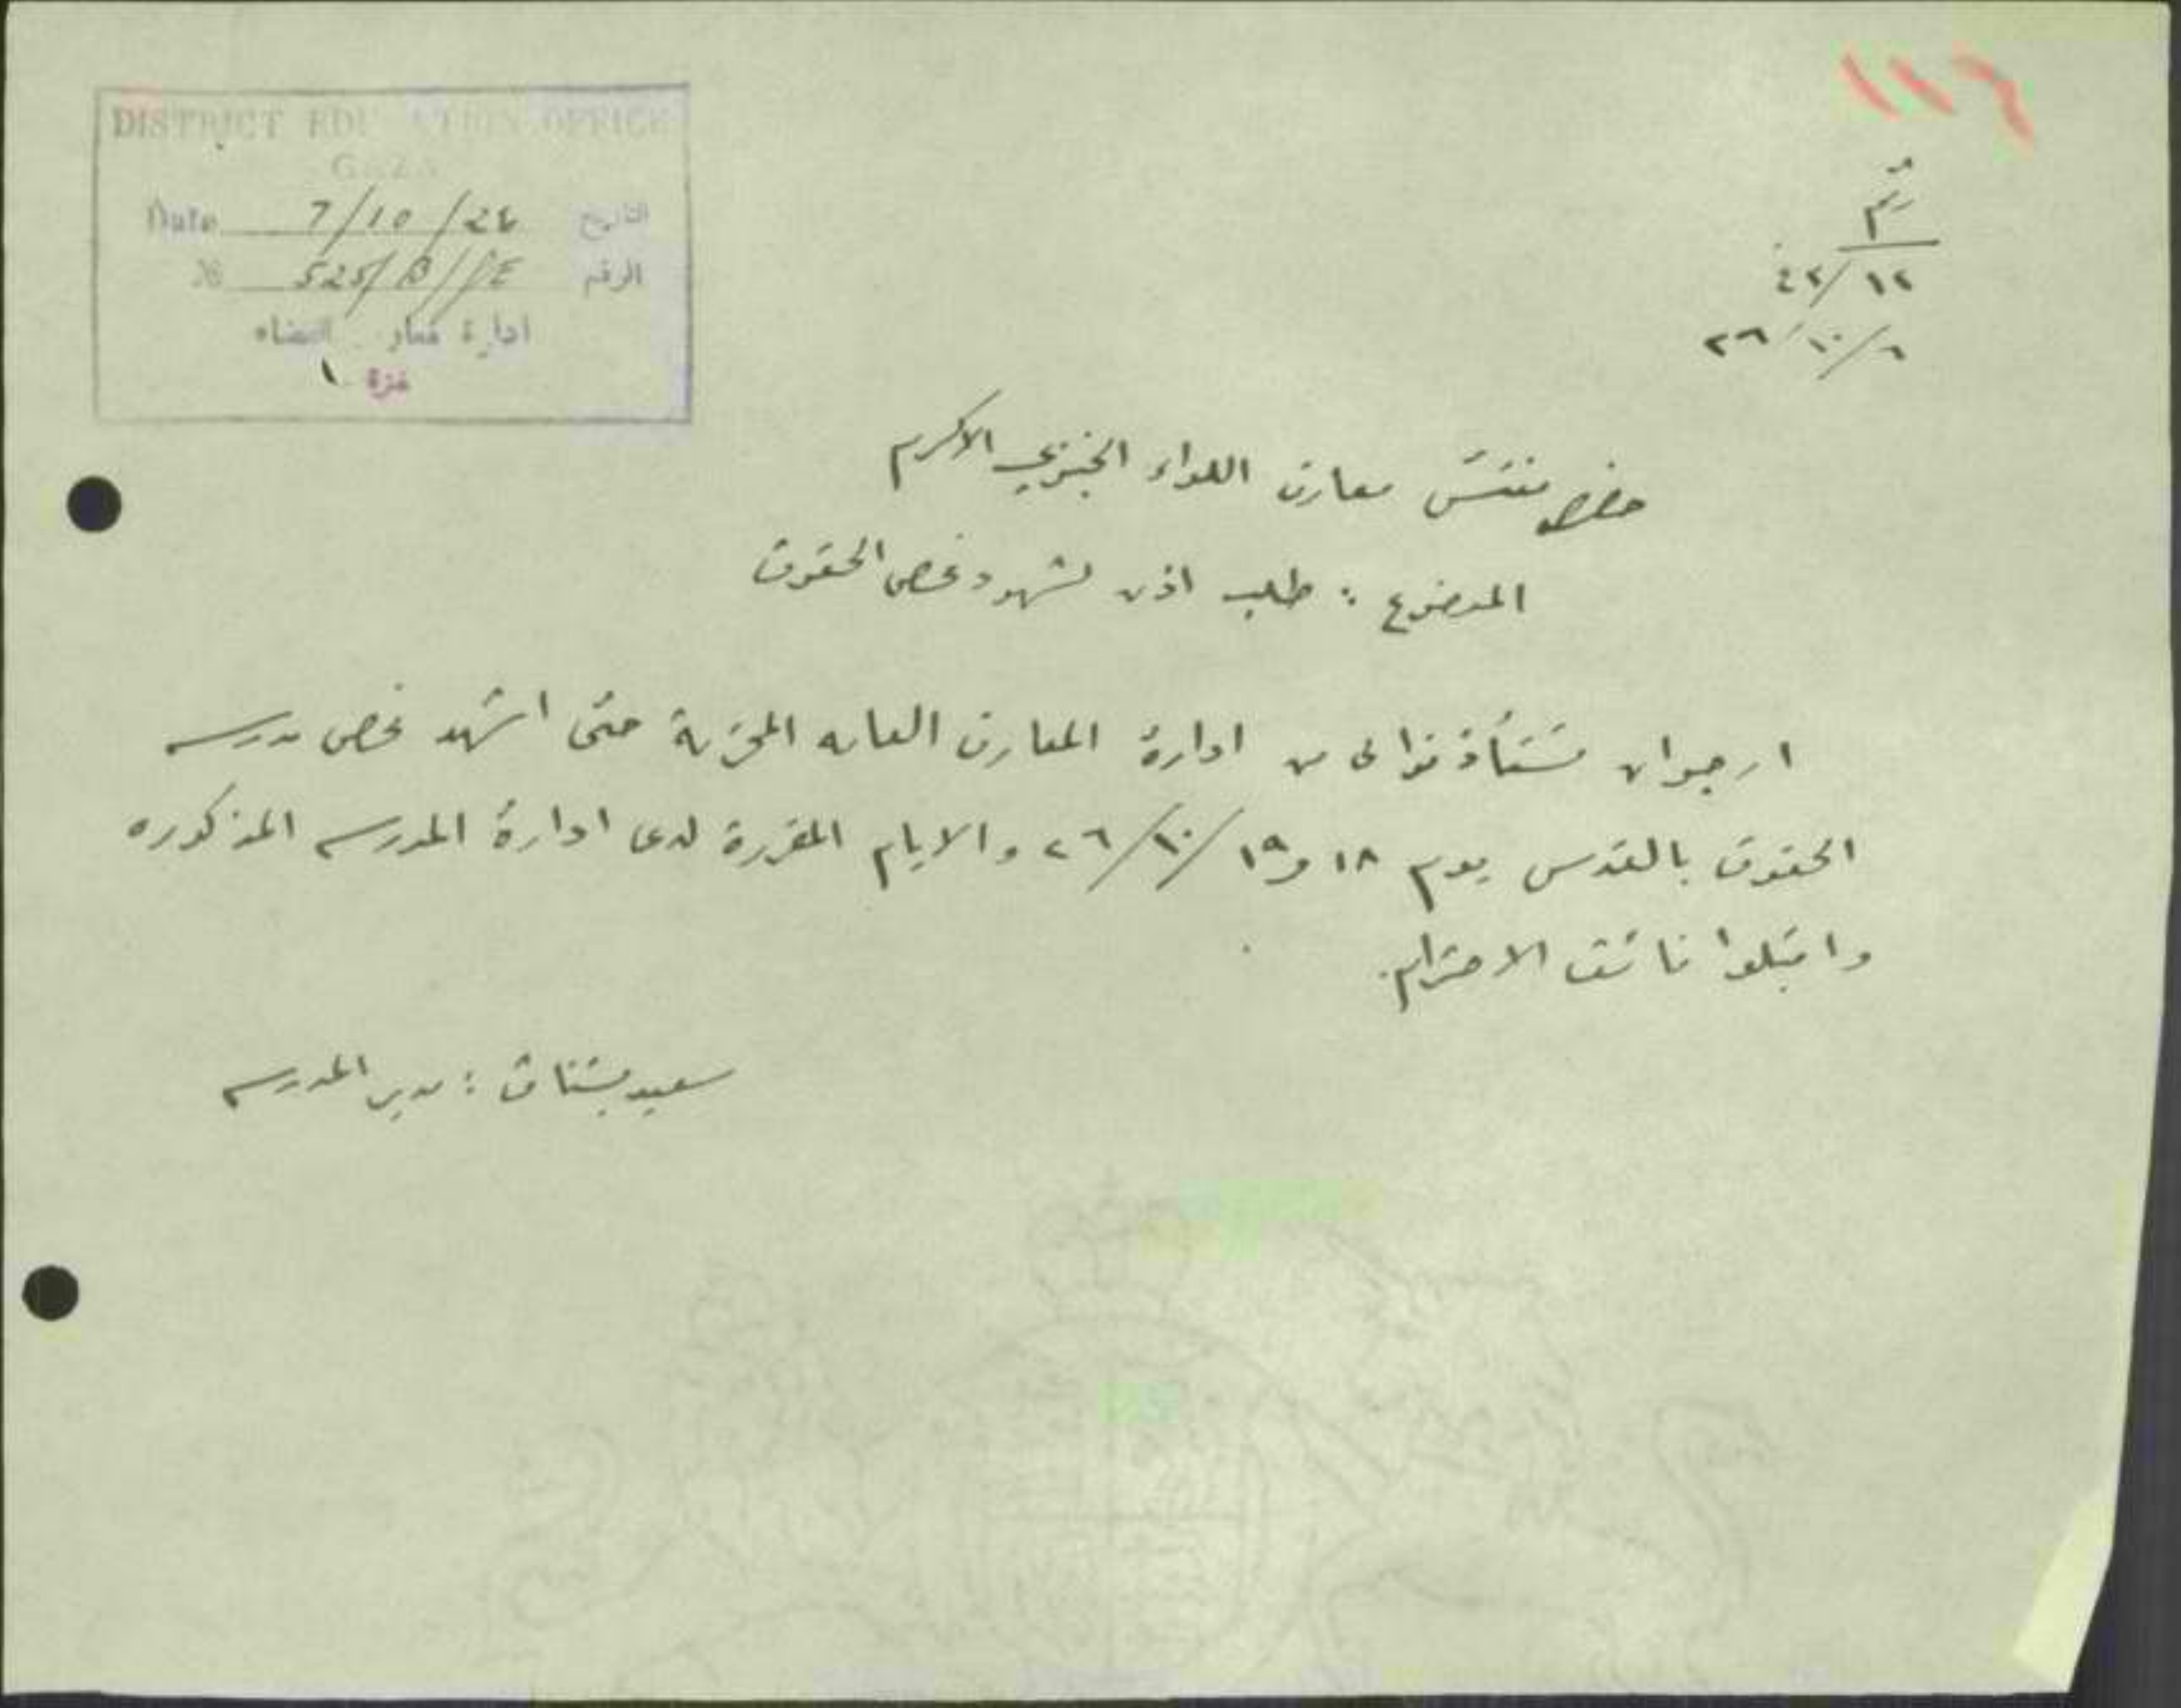 ١١٦
DISTRICT EDUCATION OFFICE
GAZA
Date 7/10/26 التاريخ
№ 525/B/ الرقم
ادارة معارف القضاء
غزة
رقم
٤٢/١٢
٢٦/١٠/٦
حضرة مفتش معارف اللواء الجنوبي الاكرم
الموضوع : طلب اذن لشهود فحص الحقوق
ارجو ان تستأذنوا لي من ادارة المعارف العامه المحترمة حتى اشهد فحص مدرسه
الحقوق بالقدس يوم ١٨ و١٩/١٠/٢٦ والايام المقررة لدى ادارة المدرسه المذكوره
واقبلوا فائق الاحترام.
سعيد بشناق : مدير المدرسه